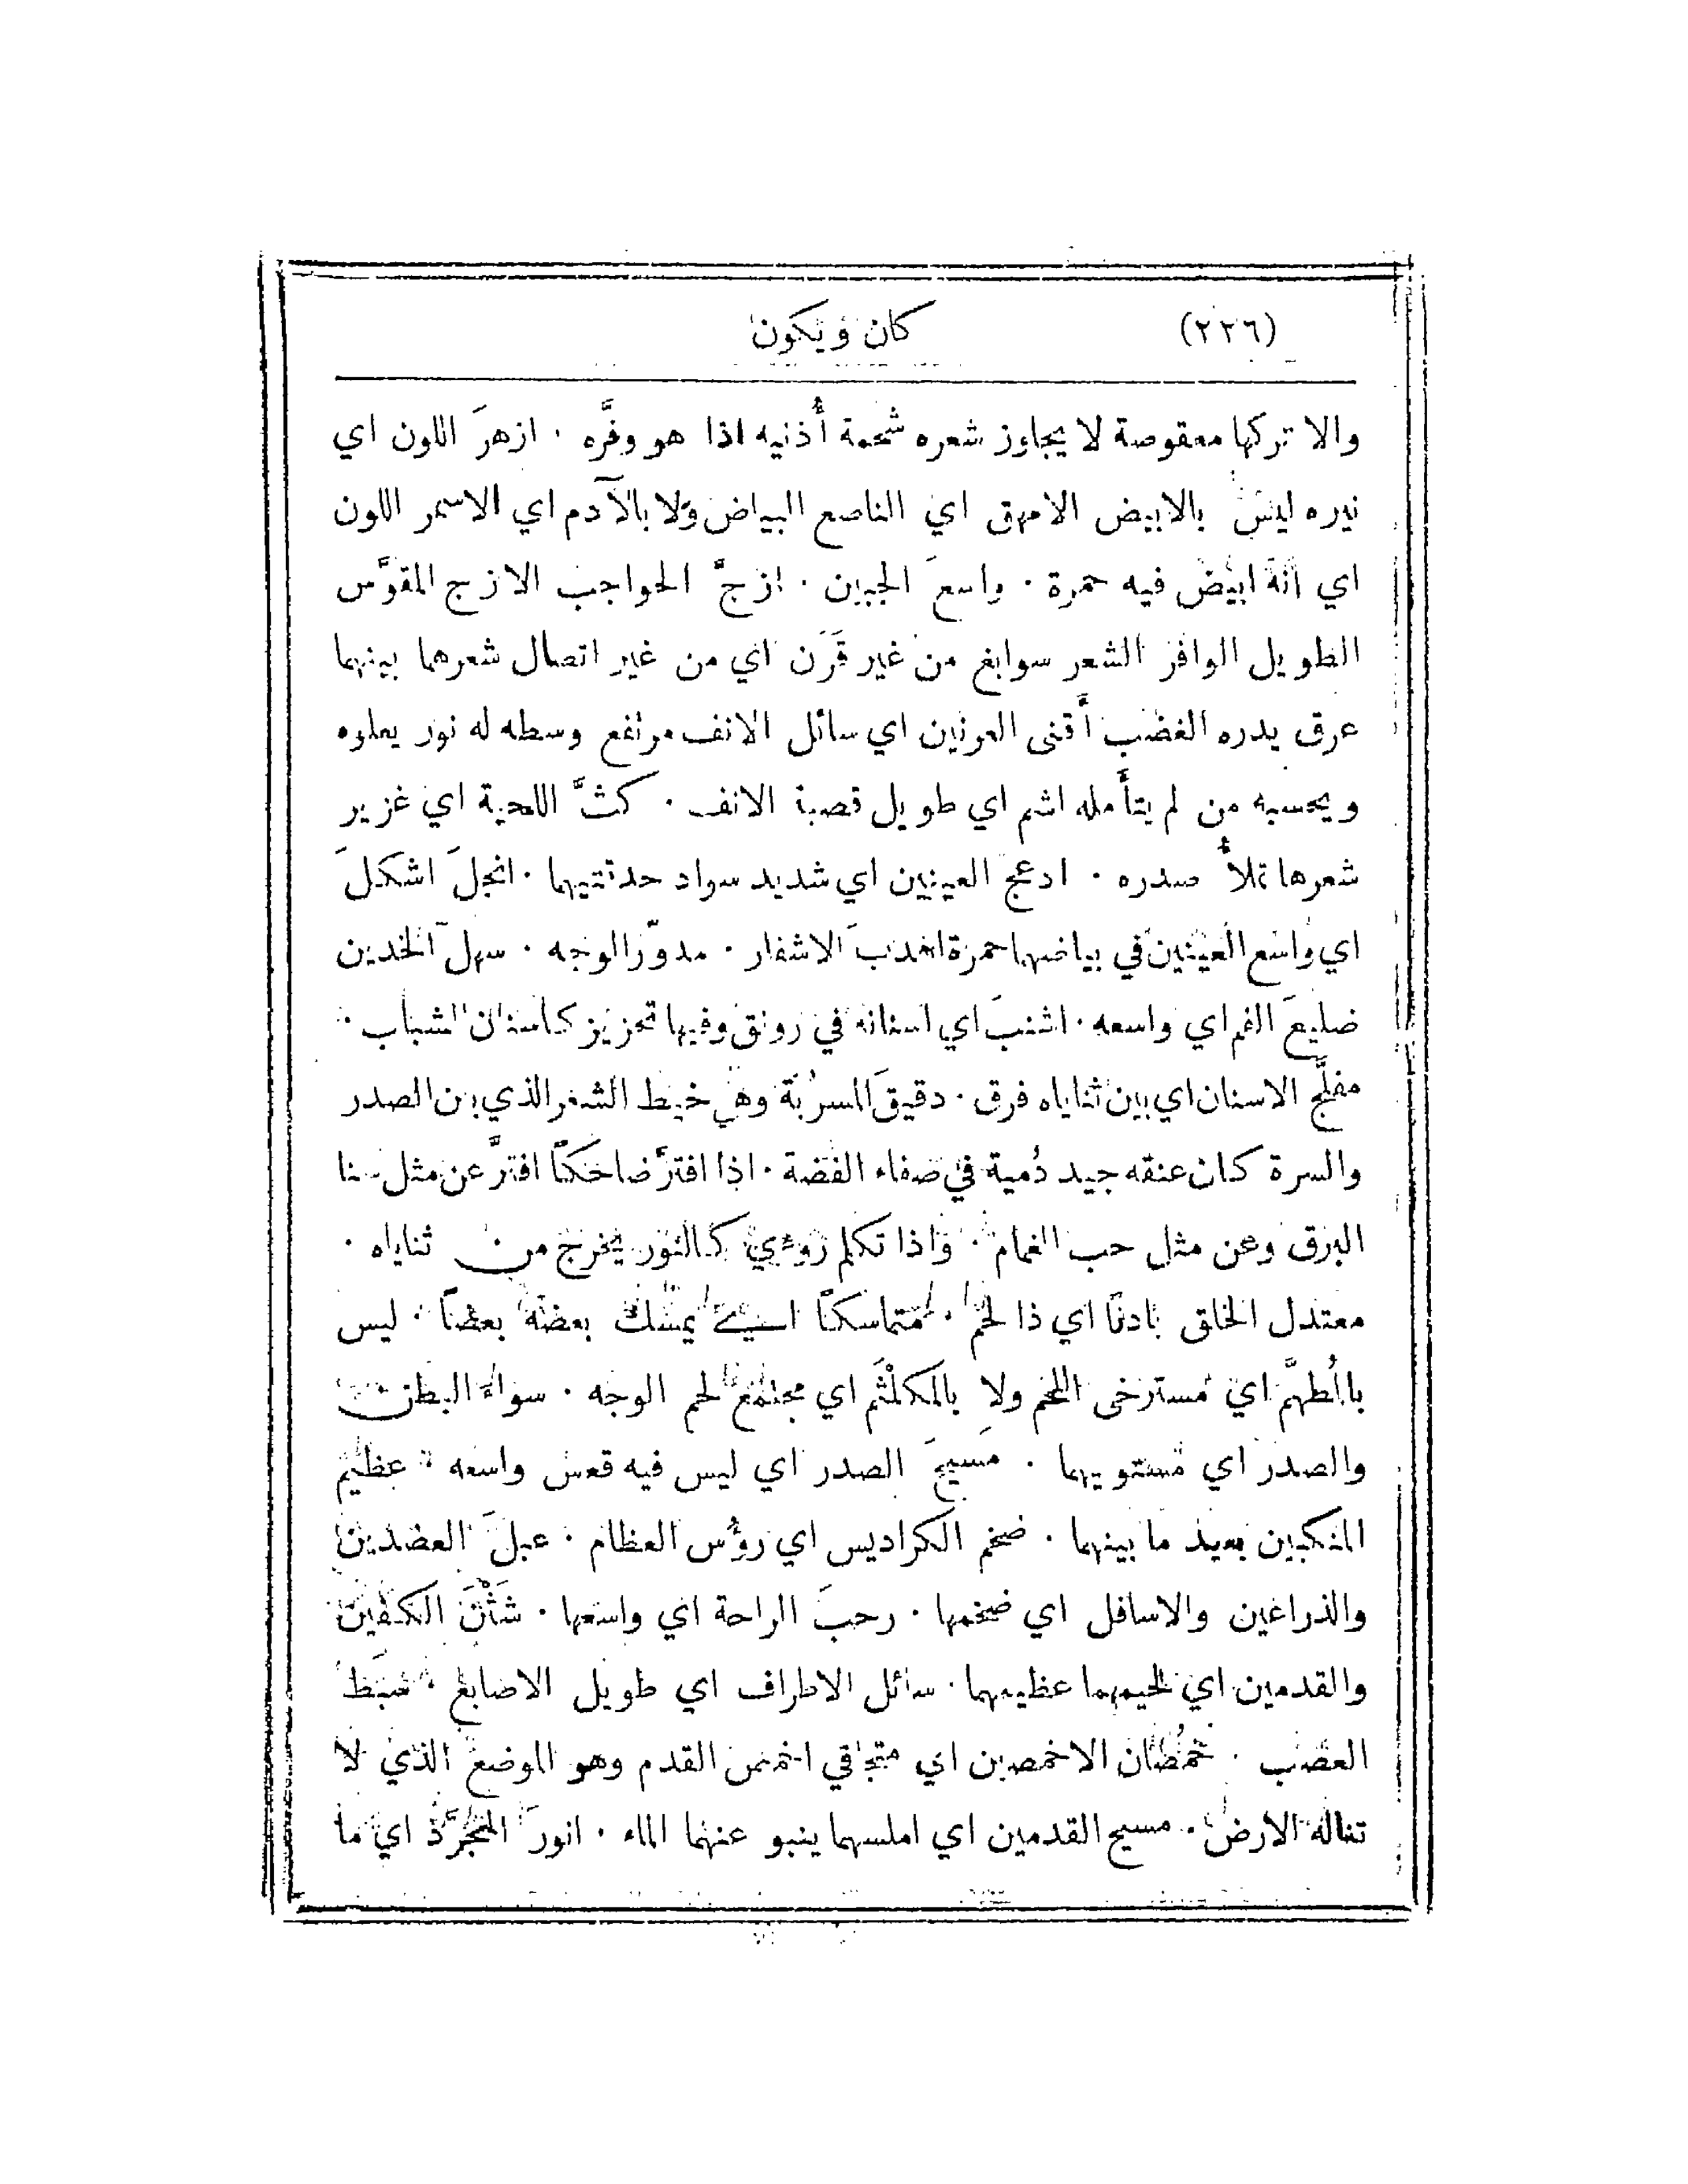 (٢٢٦) كان ويكون
والا تركها معقوصة لا يجاوز شعره شحمة أُذنيه اذا هو وفَّره ٠ ازهرَ اللون اي
نيره ليس بالابيض الامهق اي الناصع البياض ولا بالآدم اي الاسمر اللون
اي انه ابيض فيه حمرة ٠ واسعَ الجبين ٠ ازجَّ الحواجب الازج المقوَّس
الطويل الوافر الشعر سوابغ من غير قَرَن اي من غير اتصال شعرهما بينهما
عرق يدره الغضب أَقنى العرنين اي سائل الانف مرتفع وسطه له نور يعلوه
ويحسبه من لم يتأَمله اشم اي طويل قصبة الانف ٠ كثَّ اللحية اي غزير
شعرها تملأُ صدره ٠ ادعج العينين اي شديد سواد حدقتيهما ٠ انجلَ اشكلَ
اي واسع العينين في بياضهما حمرة اهدبَ الاشفار ٠ مدوّر الوجه ٠ سهل الخدين
ضليعَ الفم اي واسعه ٠ اشنبَ اي اسنانه في رونق وفيها تحزيز كاسنان الشباب ٠
مفلَّج الاسنان اي بين ثناياه فرق ٠ دقيقَ المسرُبة وهي خيط الشعر الذي بين الصدر
والسرة كان عنقه جيد دُمية في صفاء الفضة ٠ اذا افترَّ ضاحكاً افترَّ عن مثل سنا
البرق وعن مثل حب الغمام ٠ واذا تكلم روءي كالنور يخرج من ثناياه ٠
معتدل الخلق بادناً اي ذا لحم ٠ متماسكاً اي يمسك بعضه بعضاً ٠ ليس
بالمُطهَّم اي مسترخى اللحم ولا بالمكلْثَم اي مجتمع لحم الوجه ٠ سواءَ البطن
والصدر اي مستويهما ٠ مَسيحَ الصدر اي ليس فيه قعس واسعه ٠ عظيم
المنكبين بعيد ما بينهما ٠ ضخم الكراديس اي رؤُس العظام ٠ عبلَ العضدين
والذراعين والاسافل اي ضخمها ٠ رحبَ الراحة اي واسعها ٠ شَثْنَ الكفين
والقدمين اي لحيمهما عظيمهما ٠ سائل الاطراف اي طويل الاصابع ٠ سَبَط
العصب ٠ خُمصان الاخمصين اي متجافي اخمص القدم وهو الموضع الذي لا
تناله الارض ٠ مسيح القدمين اي املسهما ينبو عنهما الماء ٠ انورَ المتجرَّد اي ما